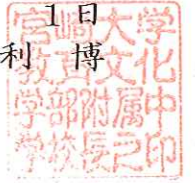 1日
利 博
宮崎大学
教育文化
学部附属中
学校長之印